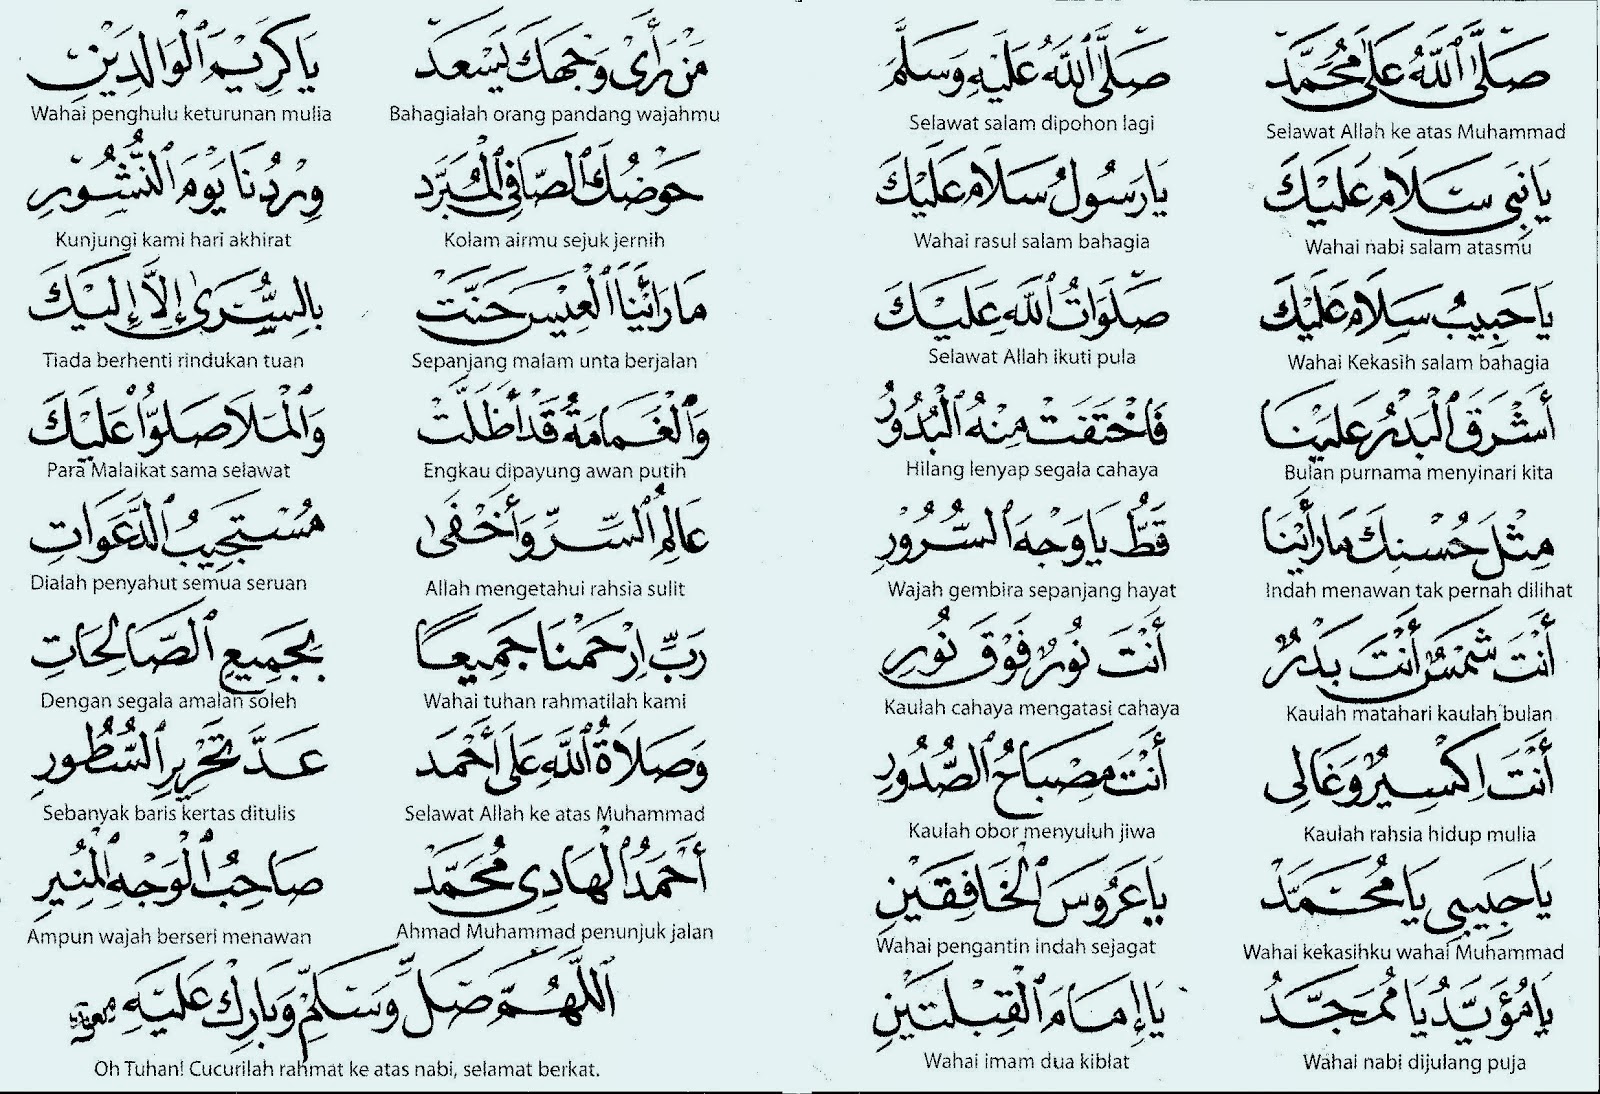 صَلَّى ٱللَّهُ عَلَىٰ مُحَمَّدْ
Selawat Allah ke atas Muhammad
صَلَّى ٱللَّهُ عَلَيْهِ وَسَلَّمْ
Selawat salam dipohon lagi
يَا نَبِي سَلَامْ عَلَيْكَ
Wahai nabi salam atasmu
يَا رَسُولُ سَلَامْ عَلَيْكَ
Wahai rasul salam bahagia
يَا حَبِيبُ سَلَامْ عَلَيْكَ
Wahai Kekasih salam bahagia
صَلَوَاتُ ٱللَّهِ عَلَيْكَ
Selawat Allah ikuti pula
أَشْرَقَ ٱلْبَدْرُ عَلَيْنَا
Bulan purnama menyinari kita
فَاخْتَفَتْ مِنْهُ ٱلْبُدُوْرُ
Hilang lenyap segala cahaya
مِثْلَ حُسْنِكَ مَا رَأَيْنَا
Indah menawan tak pernah dilihat
قَطُّ يَا وَجْهَ ٱلسُّرُوْرِ
Wajah gembira sepanjang hayat
أَنْتَ شَمْسٌ أَنْتَ بَدْرٌ
Kaulah matahari kaulah bulan
أَنْتَ نُوْرٌ فَوْقَ نُوْرِ
Kaulah cahaya mengatasi cahaya
أَنْتَ إِكْسِيرٌ وَغَالِي
Kaulah rahsia hidup mulia
أَنْتَ مِصْبَاحُ ٱلصُّدُورِ
Kaulah obor menyuluh jiwa
يَا حَبِيبِي يَا مُحَمَّدْ
Wahai kekasihku wahai Muhammad
يَا عَرُوسَ ٱلْخَافِقَيْنِ
Wahai pengantin indah sejagat
يَا مُؤَيَّدُ يَا مُمَجَّدُ
Wahai nabi dijulang puja
يَا إِمَامَ ٱلْقِبْلَتَيْنِ
Wahai imam dua kiblat
مَنْ رَأَىٰ وَجْهَكَ يَسْعَدْ
Bahagialah orang pandang wajahmu
يَا كَرِيْمَ ٱلْوَالِدَيْنِ
Wahai penghulu keturunan mulia
حَوْضُكَ ٱلصَّافِى ٱلْمُبَرَّدْ
Kolam airmu sejuk jernih
وِرْدُنَا يَوْمَ ٱلنُّشُوْرِ
Kunjungi kami hari akhirat
مَا رَأَيْنَا ٱلْعِيْسَ حَنَّتْ
Sepanjang malam unta berjalan
بِالسُّرَىٰ إِلَّا إِلَيْكَ
Tiada berhenti rindukan tuan
وَٱلْغَمَامَةُ قَدْ أَظَلَّتْ
Engkau dipayung awan putih
وَٱلْمَلَا صَلَّوْا عَلَيْكَ
Para Malaikat sama selawat
عَالِمُ ٱلسِّرِّ وَأَخْفَىٰ
Allah mengetahui rahsia sulit
مُسْتَجِيبُ ٱلدَّعَوَاتِ
Dialah penyahut semua seruan
رَبِّ ارْحَمْنَا جَمِيعًا
Wahai tuhan rahmatilah kami
بِجَمِيعِ ٱلصَّالِحَاتِ
Dengan segala amalan soleh
وَصَلَاةُ ٱللَّهِ عَلَى أَحْمَدْ
Selawat Allah ke atas Muhammad
عَدَّ تَحْرِيرِ ٱلسُّطُورِ
Sebanyak baris kertas ditulis
أَحْمَدُ ٱلْهَادِي مُحَمَّدْ
Ahmad Muhammad penunjuk jalan
صَاحِبُ ٱلْوَجْهِ ٱلْمُنِيْرِ
Ampun wajah berseri menawan
ٱللَّهُمَّ صَلِّ وَسَلِّمْ وَبَارِكْ عَلَيْهِ
Oh Tuhan! Cucurilah rahmat ke atas nabi, selamat berkat.